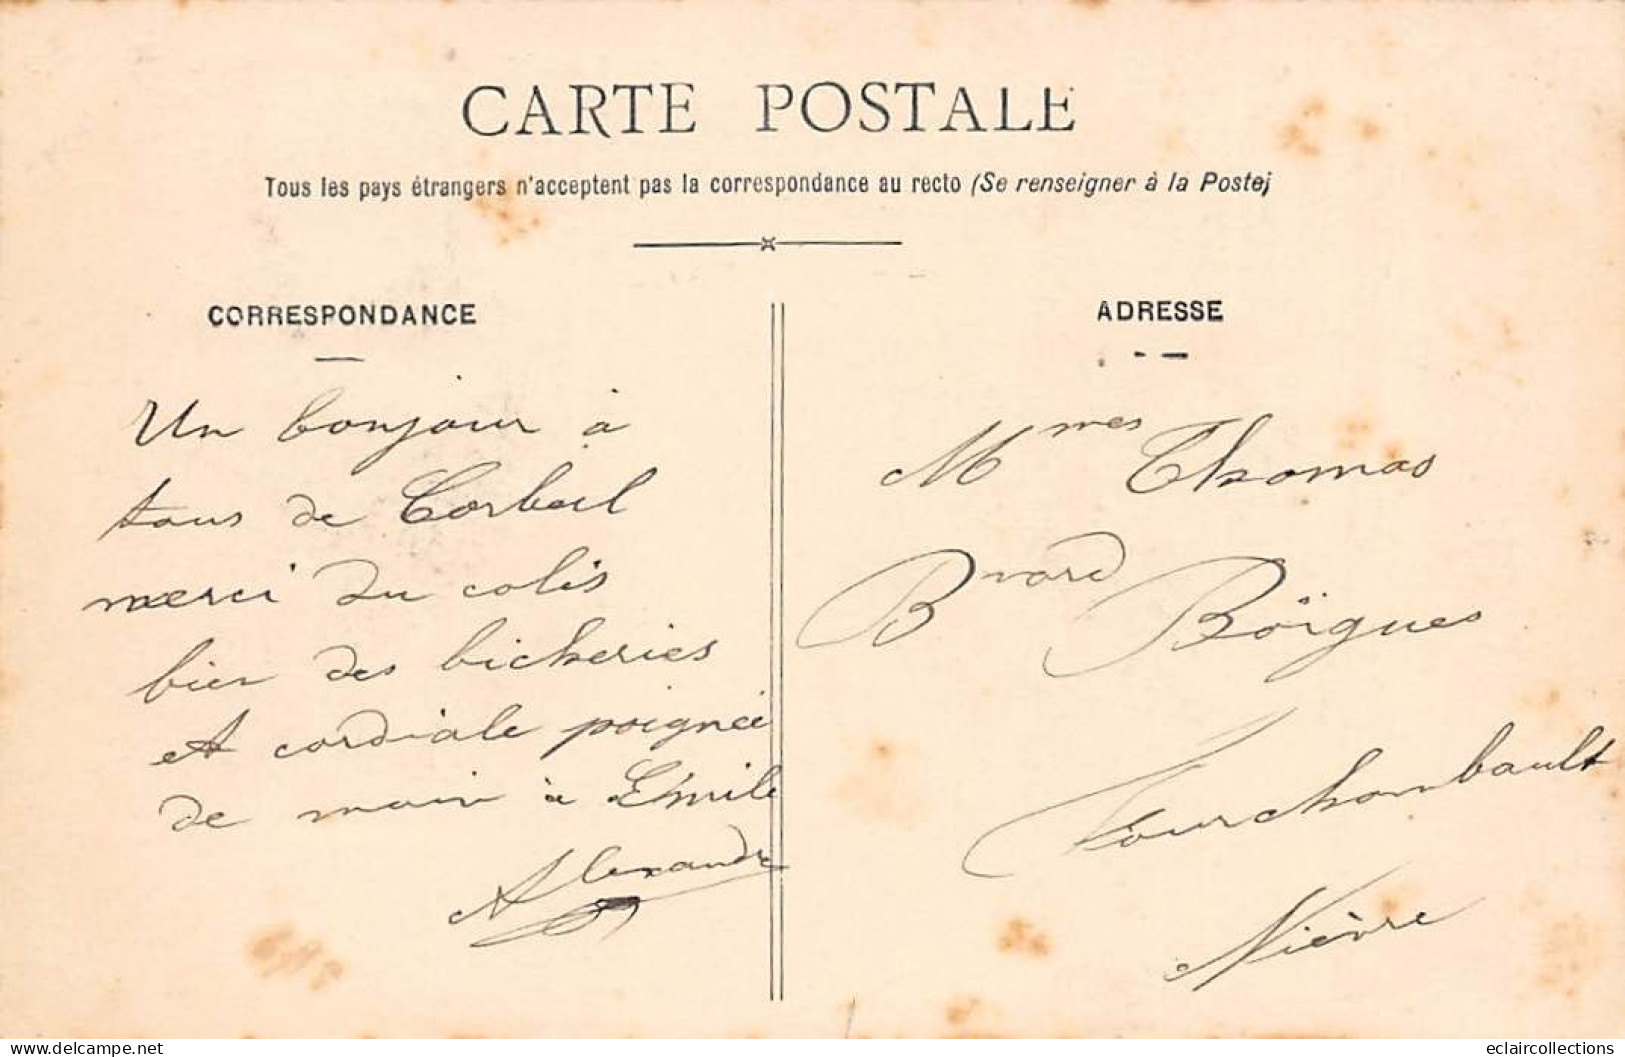 CARTE POSTALE
Tous les pays étrangers n'acceptent pas la correspondance au recto (Se renseigner à la Poste)
CORRESPONDANCE
Un bonjour à
tous de Corbeil
merci du colis
bien des bickeries
et cordiale poignée
de main à Emile
Alexandre
ADRESSE
Mmes Thomas
Bvard Böigues
Fourchambault
Nièvre
www.delcampe.net
eclaircollections